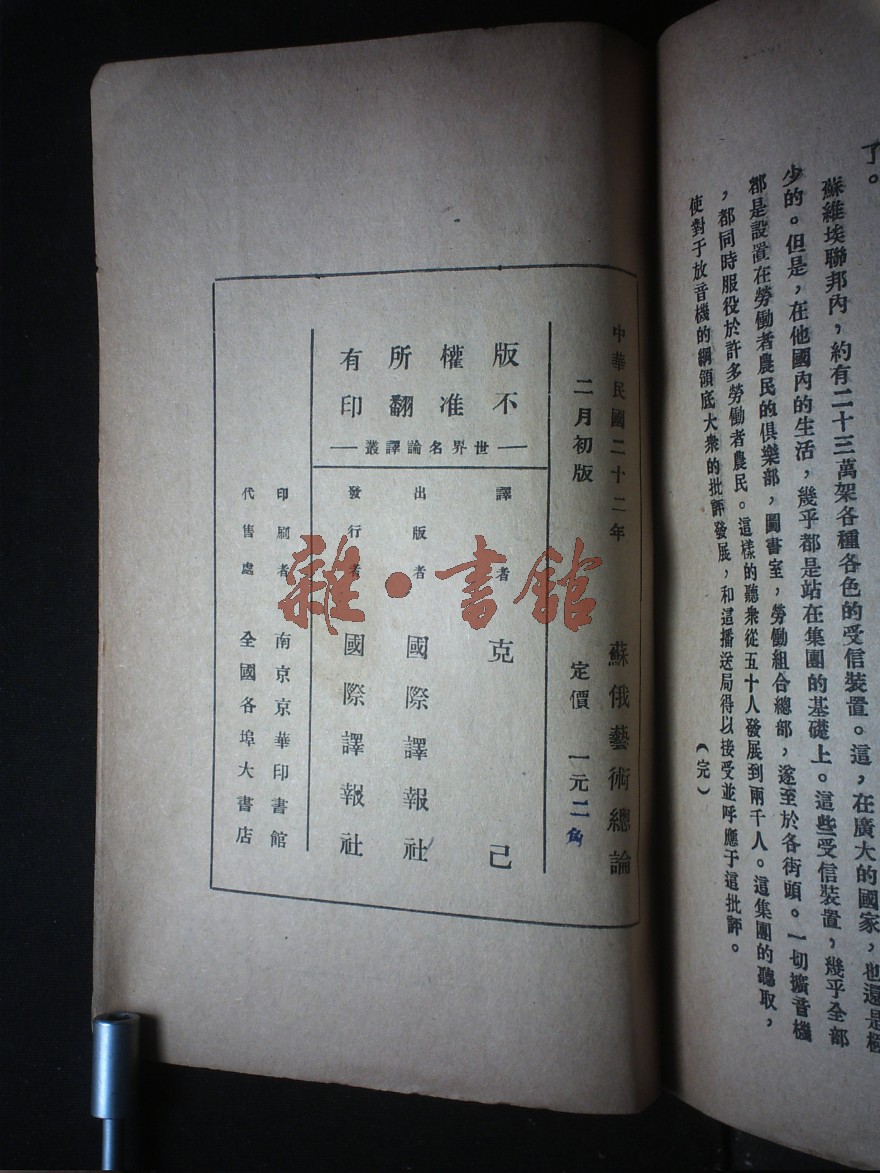 了。
蘇維埃聯邦內，約有二十三萬架各種各色的受信裝置。這，在廣大的國家，也還是極
少的。但是，在他國內的生活，幾乎都是站在集團的基礎上。這些受信裝置，幾乎全部
都是設置在勞働者農民的俱樂部，圖書室，勞働組合總部，遂至於各街頭。一切擴音機
，都同時服役於許多勞働者農民。這樣的聽衆從五十人發展到兩千人。這集團的聽取，
使對于放音機的綱領底大衆的批評發展，和這播送局得以接受並呼應于這批評。
（完）
中華民國二十二年 蘇俄藝術總論
二月初版 定價 一元二角
版權所有
不准翻印
世界名論譯叢
譯者 克己
出版者 國際譯報社
發行者 國際譯報社
印刷者 南京京華印書館
代售處 全國各埠大書店
雜·書館